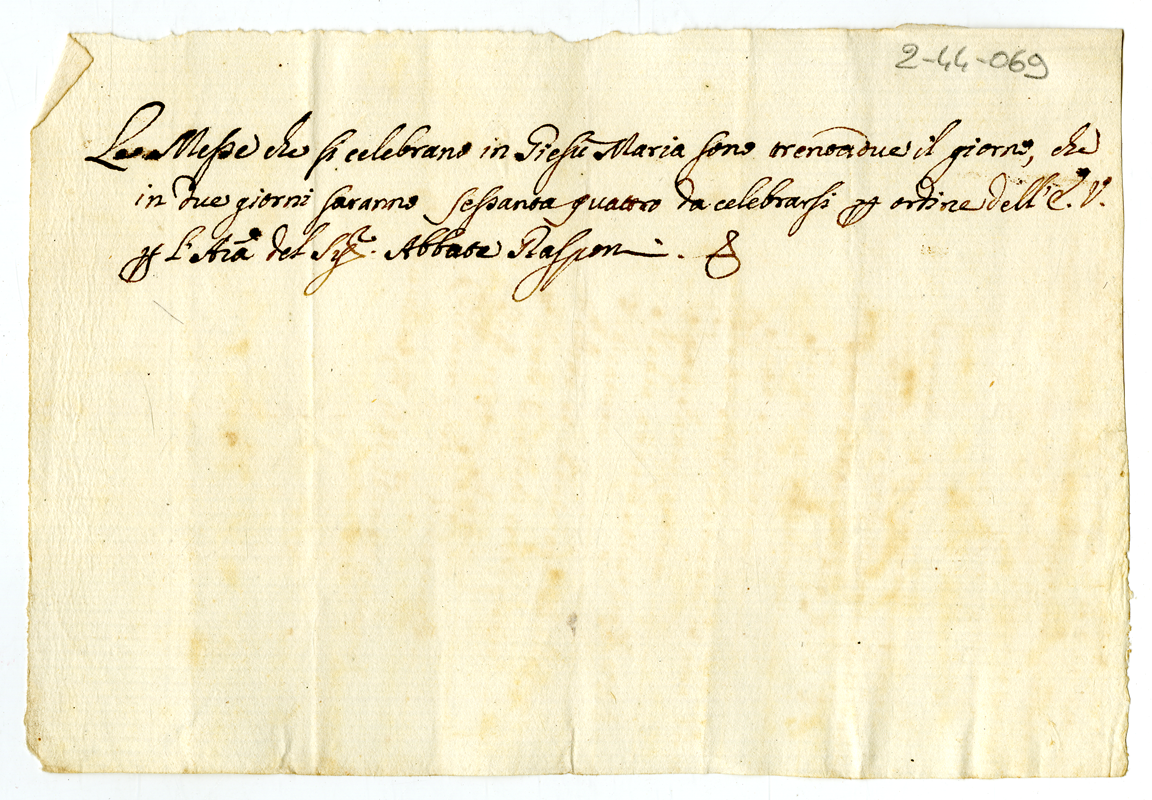 2-44-069
Le Messe che si celebrano in Giesù Maria sono trentadue il giorno, che
in due giorni saranno sessanta quattro da celebrarsi p ordine dell' E. V.
p l' Aīa del Sig.r Abbate Rasponi.